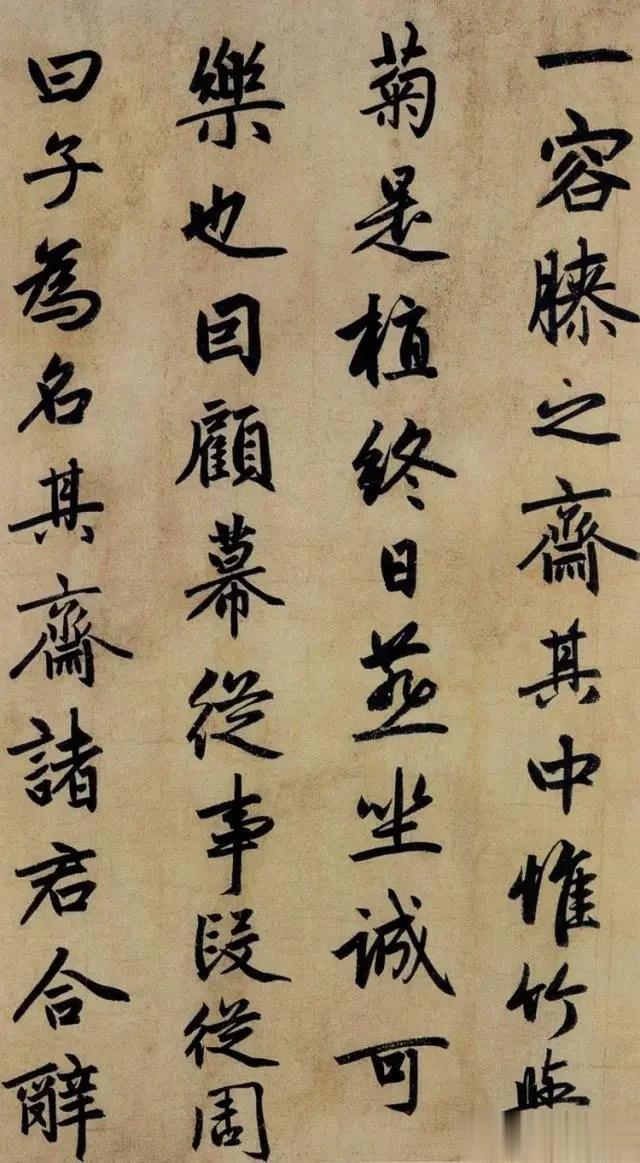 一容膝之齋其中惟竹與
菊是植終日燕坐誠可
樂也因顧幕從事段從周
曰子為名其齋諸君合辭